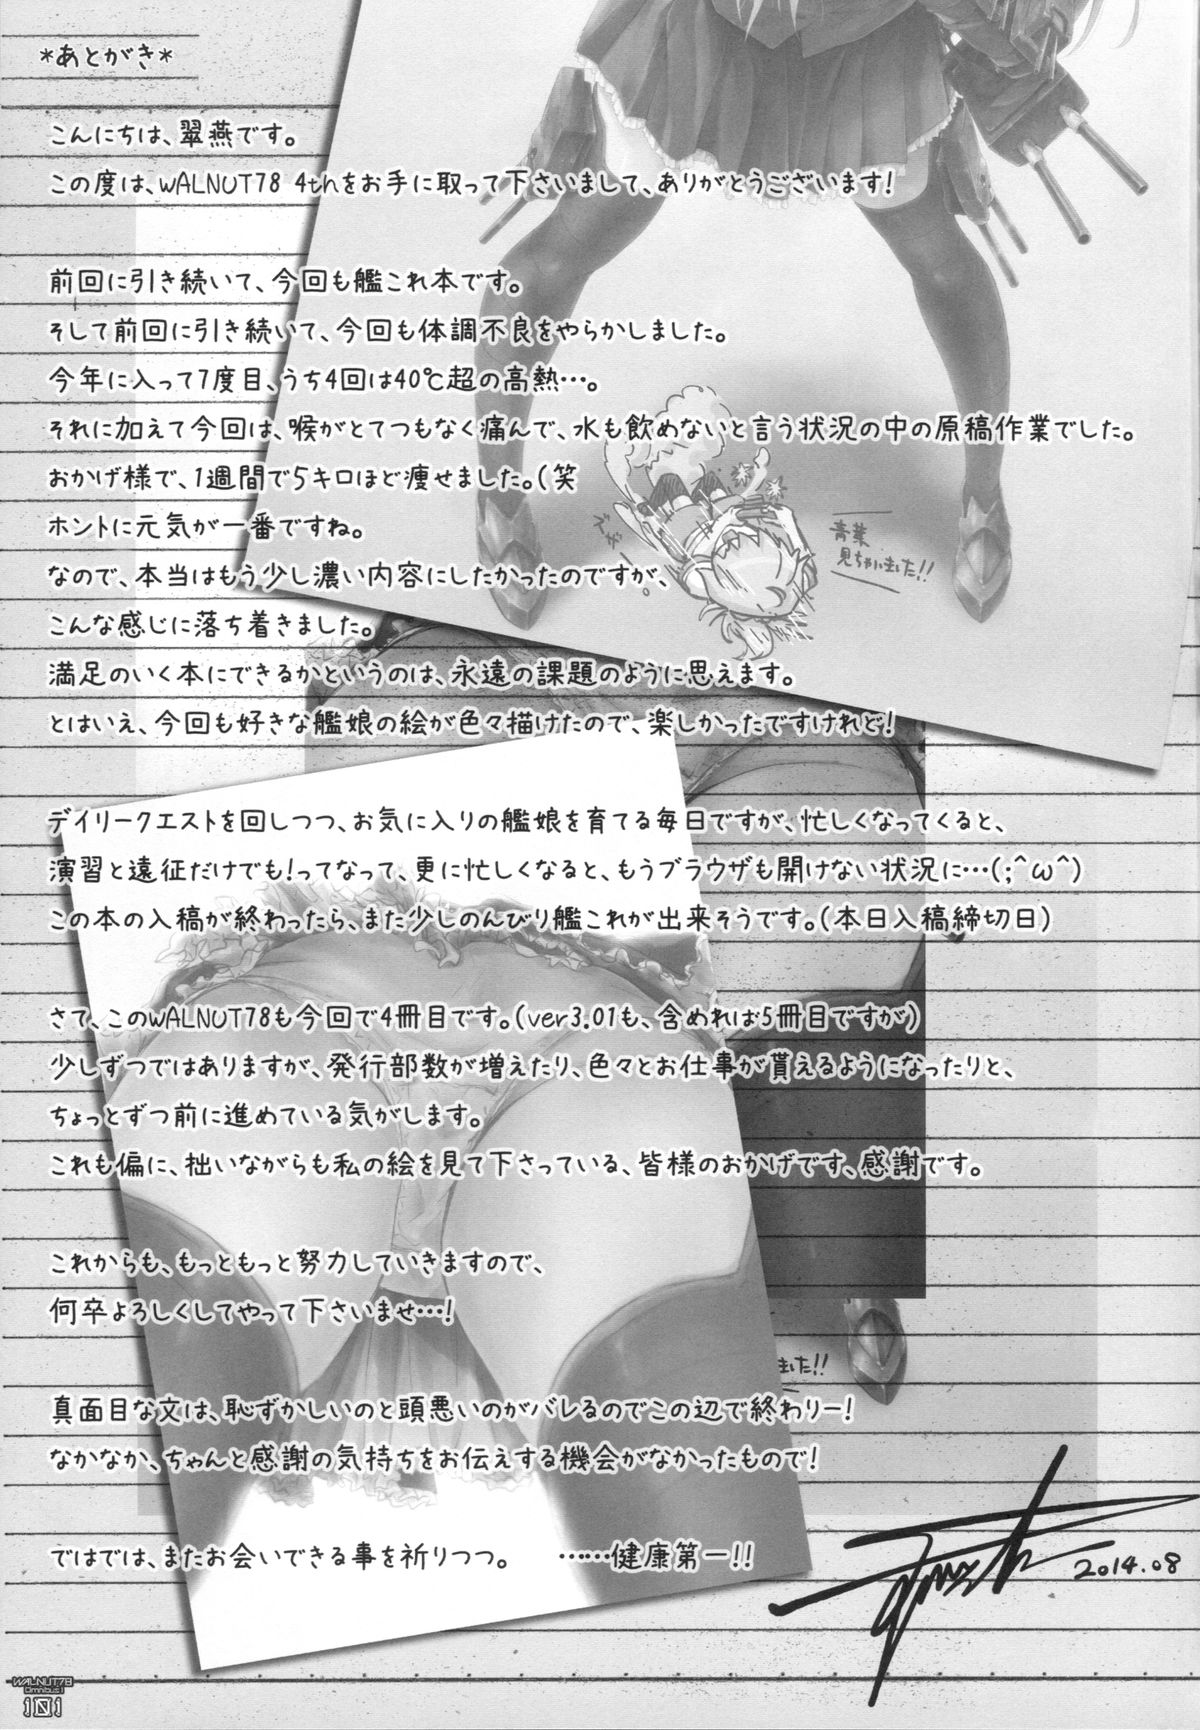 *あとがき*
こんにちは、翠燕です。
この度は、WALNUT78 4thをお手に取って下さいまして、ありがとうございます!
前回に引き続いて、今回も艦これ本です。
そして前回に引き続いて、今回も体調不良をやらかしました。
今年に入って7度目、うち4回は40℃超の高熱…。
それに加えて今回は、喉がとてつもなく痛んで、水も飲めないと言う状況の中の原稿作業でした。
おかげ様で、1週間で5キロほど痩せました。(笑
ホントに元気が一番ですね。
なので、本当はもう少し濃い内容にしたかったのですが、
こんな感じに落ち着きました。
満足のいく本にできるかというのは、永遠の課題のように思えます。
とはいえ、今回も好きな艦娘の絵が色々描けたので、楽しかったですけれど!
青葉
見ちゃいました!!
デイリークエストを回しつつ、お気に入りの艦娘を育てる毎日ですが、忙しくなってくると、
演習と遠征だけでも!ってなって、更に忙しくなると、もうブラウザも開けない状況に…(;^ω^)
この本の入稿が終わったら、また少しのんびり艦これが出来そうです。(本日入稿締切日)
さて、このWALNUT78も今回で4冊目です。(ver3.01も、含めれば5冊目ですが)
少しずつではありますが、発行部数が増えたり、色々とお仕事が貰えるようになったりと、
ちょっとずつ前に進めている気がします。
これも偏に、拙いながらも私の絵を見て下さっている、皆様のおかげです、感謝です。
これからも、もっともっと努力していきますので、
何卒よろしくしてやって下さいませ…!
ました!!
真面目な文は、恥ずかしいのと頭悪いのがバレるのでこの辺で終わりー!
なかなか、ちゃんと感謝の気持ちをお伝えする機会がなかったもので!
ではでは、またお会いできる事を祈りつつ。 ……健康第一!!
2014.08
WALNUT78
Omnibus1
101